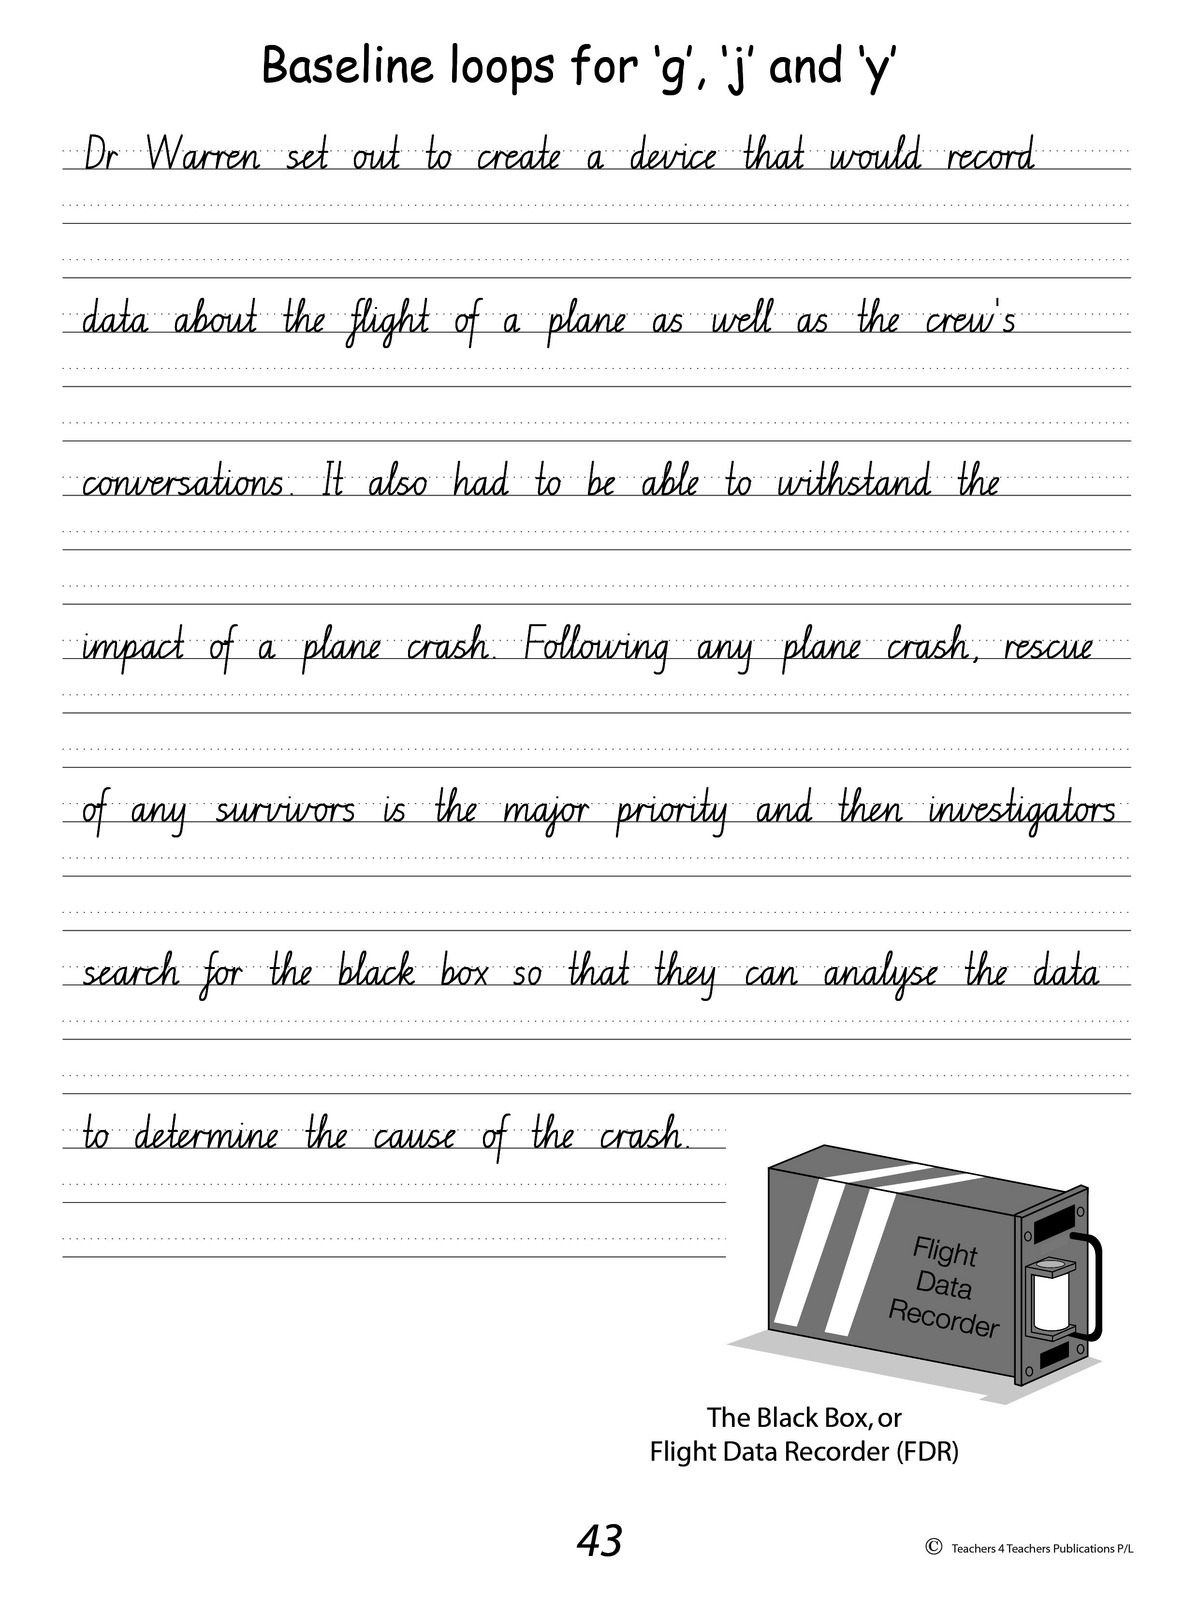 Baseline loops for ‘g’, ‘j’ and ‘y’
Dr Warren set out to create a device that would record
data about the flight of a plane as well as the crew's
conversations. It also had to be able to withstand the
impact of a plane crash. Following any plane crash, rescue
of any survivors is the major priority and then investigators
search for the black box so that they can analyse the data
to determine the cause of the crash.
Flight
Data
Recorder
The Black Box, or
Flight Data Recorder (FDR)
43
© Teachers 4 Teachers Publications P/L